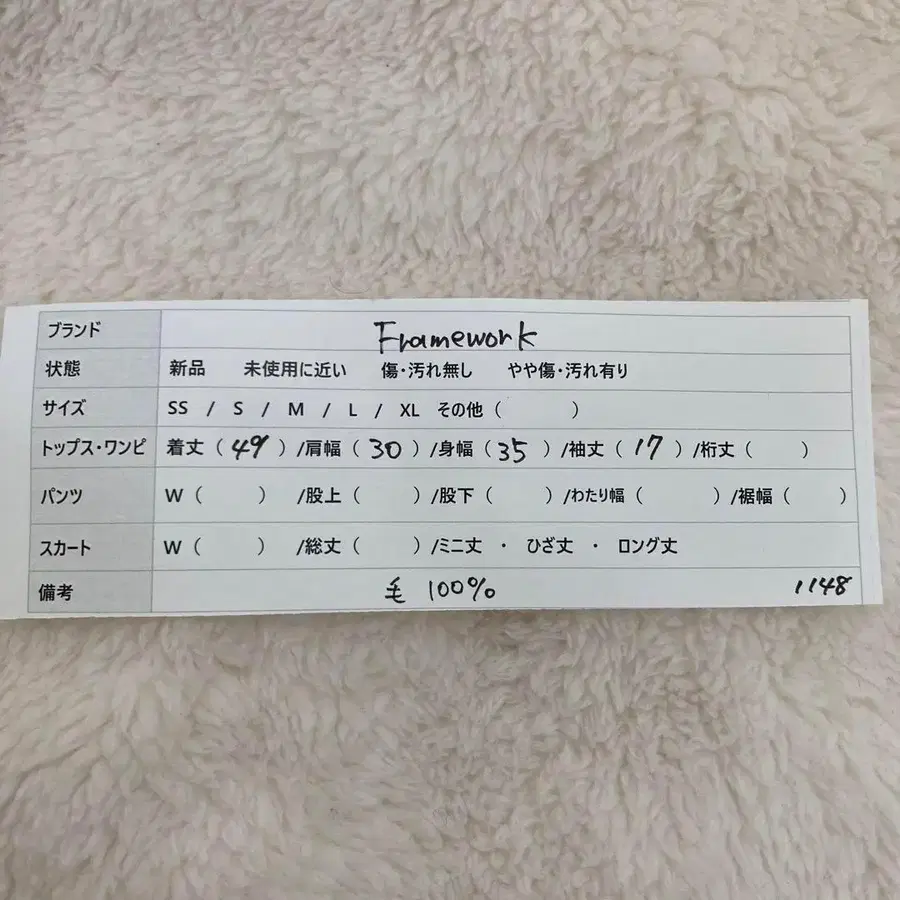 ブランド Framework
状態 新品 未使用に近い 傷・汚れ無し やや傷・汚れ有り
サイズ SS / S / M / L / XL その他 ( )
トップス・ワンピ 着丈 ( 49 ) /肩幅 ( 30 ) /身幅 ( 35 ) /袖丈 ( 17 ) /裄丈 ( )
パンツ W ( ) /股上 ( ) /股下 ( ) /わたり幅 ( ) /裾幅 ( )
スカート W ( ) /総丈 ( ) /ミニ丈 ・ ひざ丈 ・ ロング丈
備考 毛 100% 1148